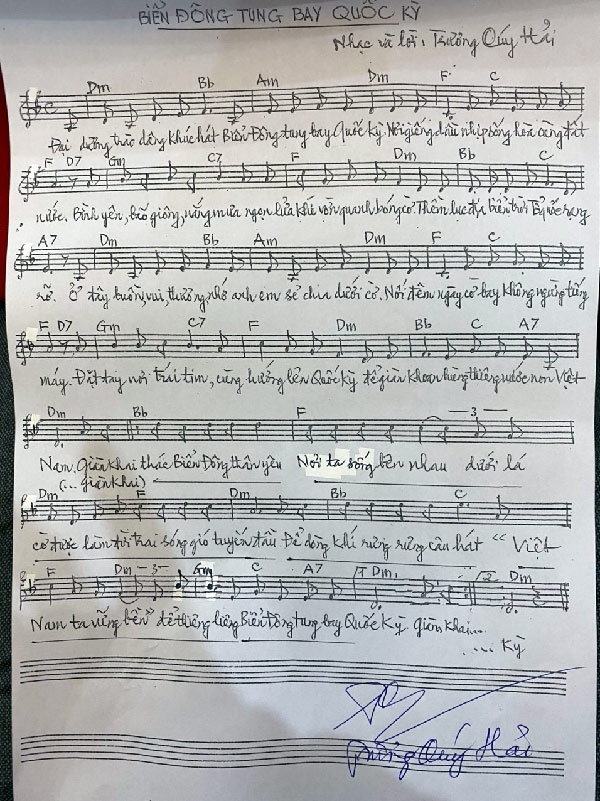 BIỂN ĐÔNG TUNG BAY QUỐC KỲ
Nhạc và lời: Trương Quý Hải
Dm Bb Am Dm F C
Đại dương trào dâng khúc hát Biển Đông tung bay Quốc Kỳ. Nơi giếng dầu nhịp sống hòa cùng đất
F D7 Gm C7 F Dm Bb C
nước. Bình yên, bão giông, nắng mưa ngọn lửa khí vờn quanh bóng cờ. Thềm lục địa biển trời Tổ quốc rạng
A7 Dm Bb Am Dm F C
rỡ. Ở đây buồn, vui, thương, nhớ anh em sẻ chia dưới cờ. Nơi đêm ngày cờ bay không ngừng tiếng
F D7 Gm C7 F Dm Bb C A7
máy. Đặt tay nơi trái tim, cùng hướng lên Quốc kỳ để giàn khoan hùng thiêng nước non Việt
Dm Bb F 3
Nam. Giàn khai thác Biển Đông thân yêu Nơi ta sống bên nhau dưới lá
(... giàn khai)
Dm F Dm Bb C
cờ được làm người trai sóng gió tuyến đầu Để dòng khí rưng rưng câu hát “Việt
F Dm 3 Gm C A7 1 Dm 2 Dm
Nam ta vững bền” để thiêng liêng Biển Đông tung bay Quốc Kỳ. Giàn khai...
.... Kỳ
Trương Quý Hải